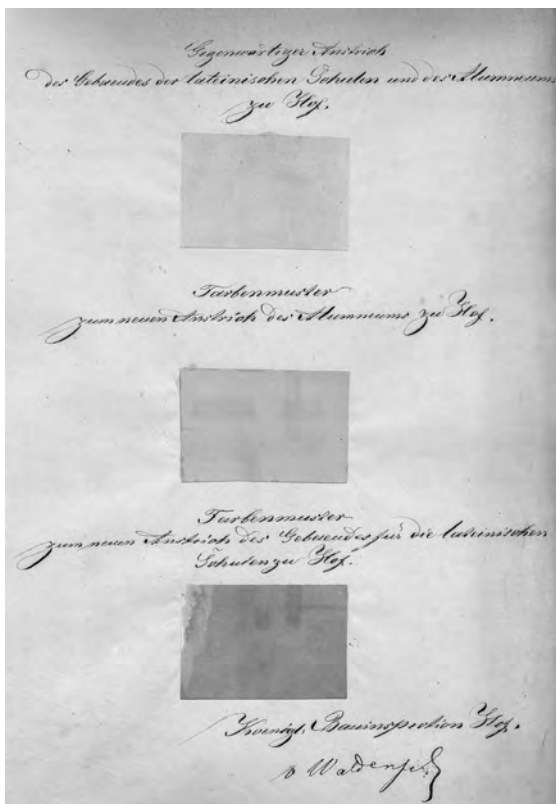 Gegenwärtiger Anstrich
des Gebaeudes der lateinischen Schulen und des Alumneums
zu Hof.
Farbenmuster
zum neuen Anstrich des Alumneums zu Hof.
Farbenmuster
zum neuen Anstrich des Gebaeudes für die lateinischen
Schulen zu Hof.
Koenigl. Bauinspection Hof.
v Waldenfels